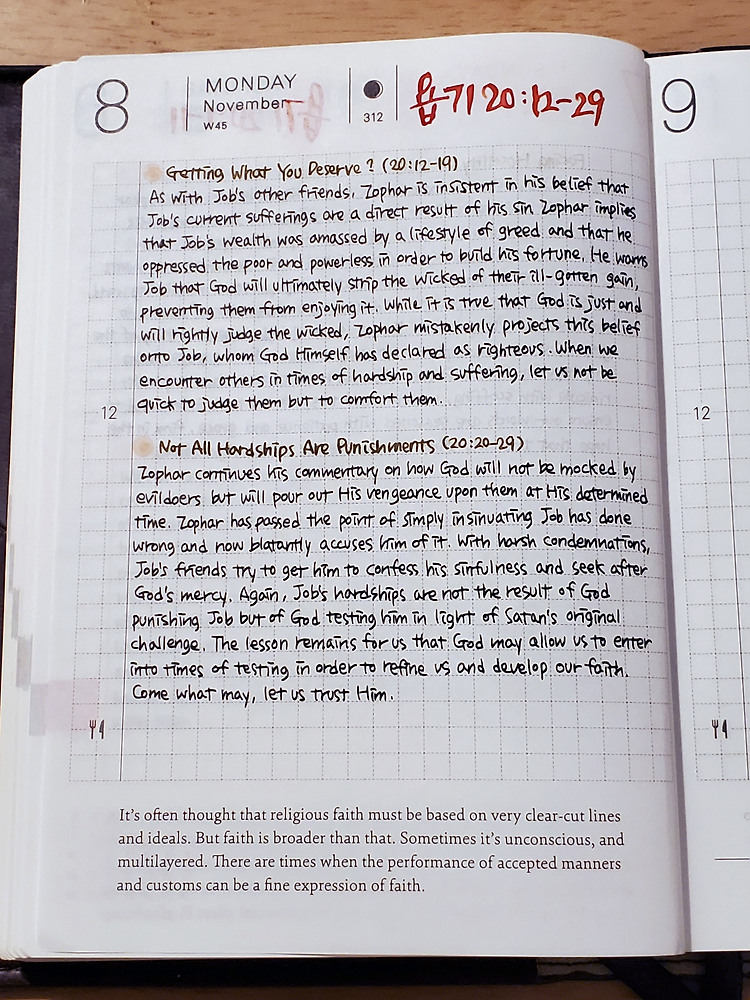 8
MONDAY
November
W45
312
욥기 20:12-29
9
Getting What You Deserve? (20:12-19)
As with Job's other friends, Zophar is insistent in his belief that
Job's current sufferings are a direct result of his sin Zophar implies
that Job's wealth was amassed by a lifestyle of greed and that he
oppressed the poor and powerless in order to build his fortune. He warns
Job that God will ultimately strip the wicked of their ill-gotten gain,
preventing them from enjoying it. While it is true that God is just and
will rightly judge the wicked, Zophar mistakenly projects this belief
onto Job, whom God Himself has declared as righteous. When we
encounter others in times of hardship and suffering, let us not be
quick to judge them but to comfort them.
12
12
Not All Hardships Are Punishments (20:20-29)
Zophar continues his commentary on how God will not be mocked by
evildoers but will pour out His vengeance upon them at His determined
time. Zophar has passed the point of simply insinuating Job has done
wrong and now blatantly accuses him of it. With harsh condemnations,
Job's friends try to get him to confess his sinfulness and seek after
God's mercy. Again, Job's hardships are not the result of God
punishing Job but of God testing him in light of Satan's original
challenge. The lesson remains for us that God may allow us to enter
into times of testing in order to refine us and develop our faith.
Come what may, let us trust Him.
It's often thought that religious faith must be based on very clear-cut lines
and ideals. But faith is broader than that. Sometimes it's unconscious, and
multilayered. There are times when the performance of accepted manners
and customs can be a fine expression of faith.